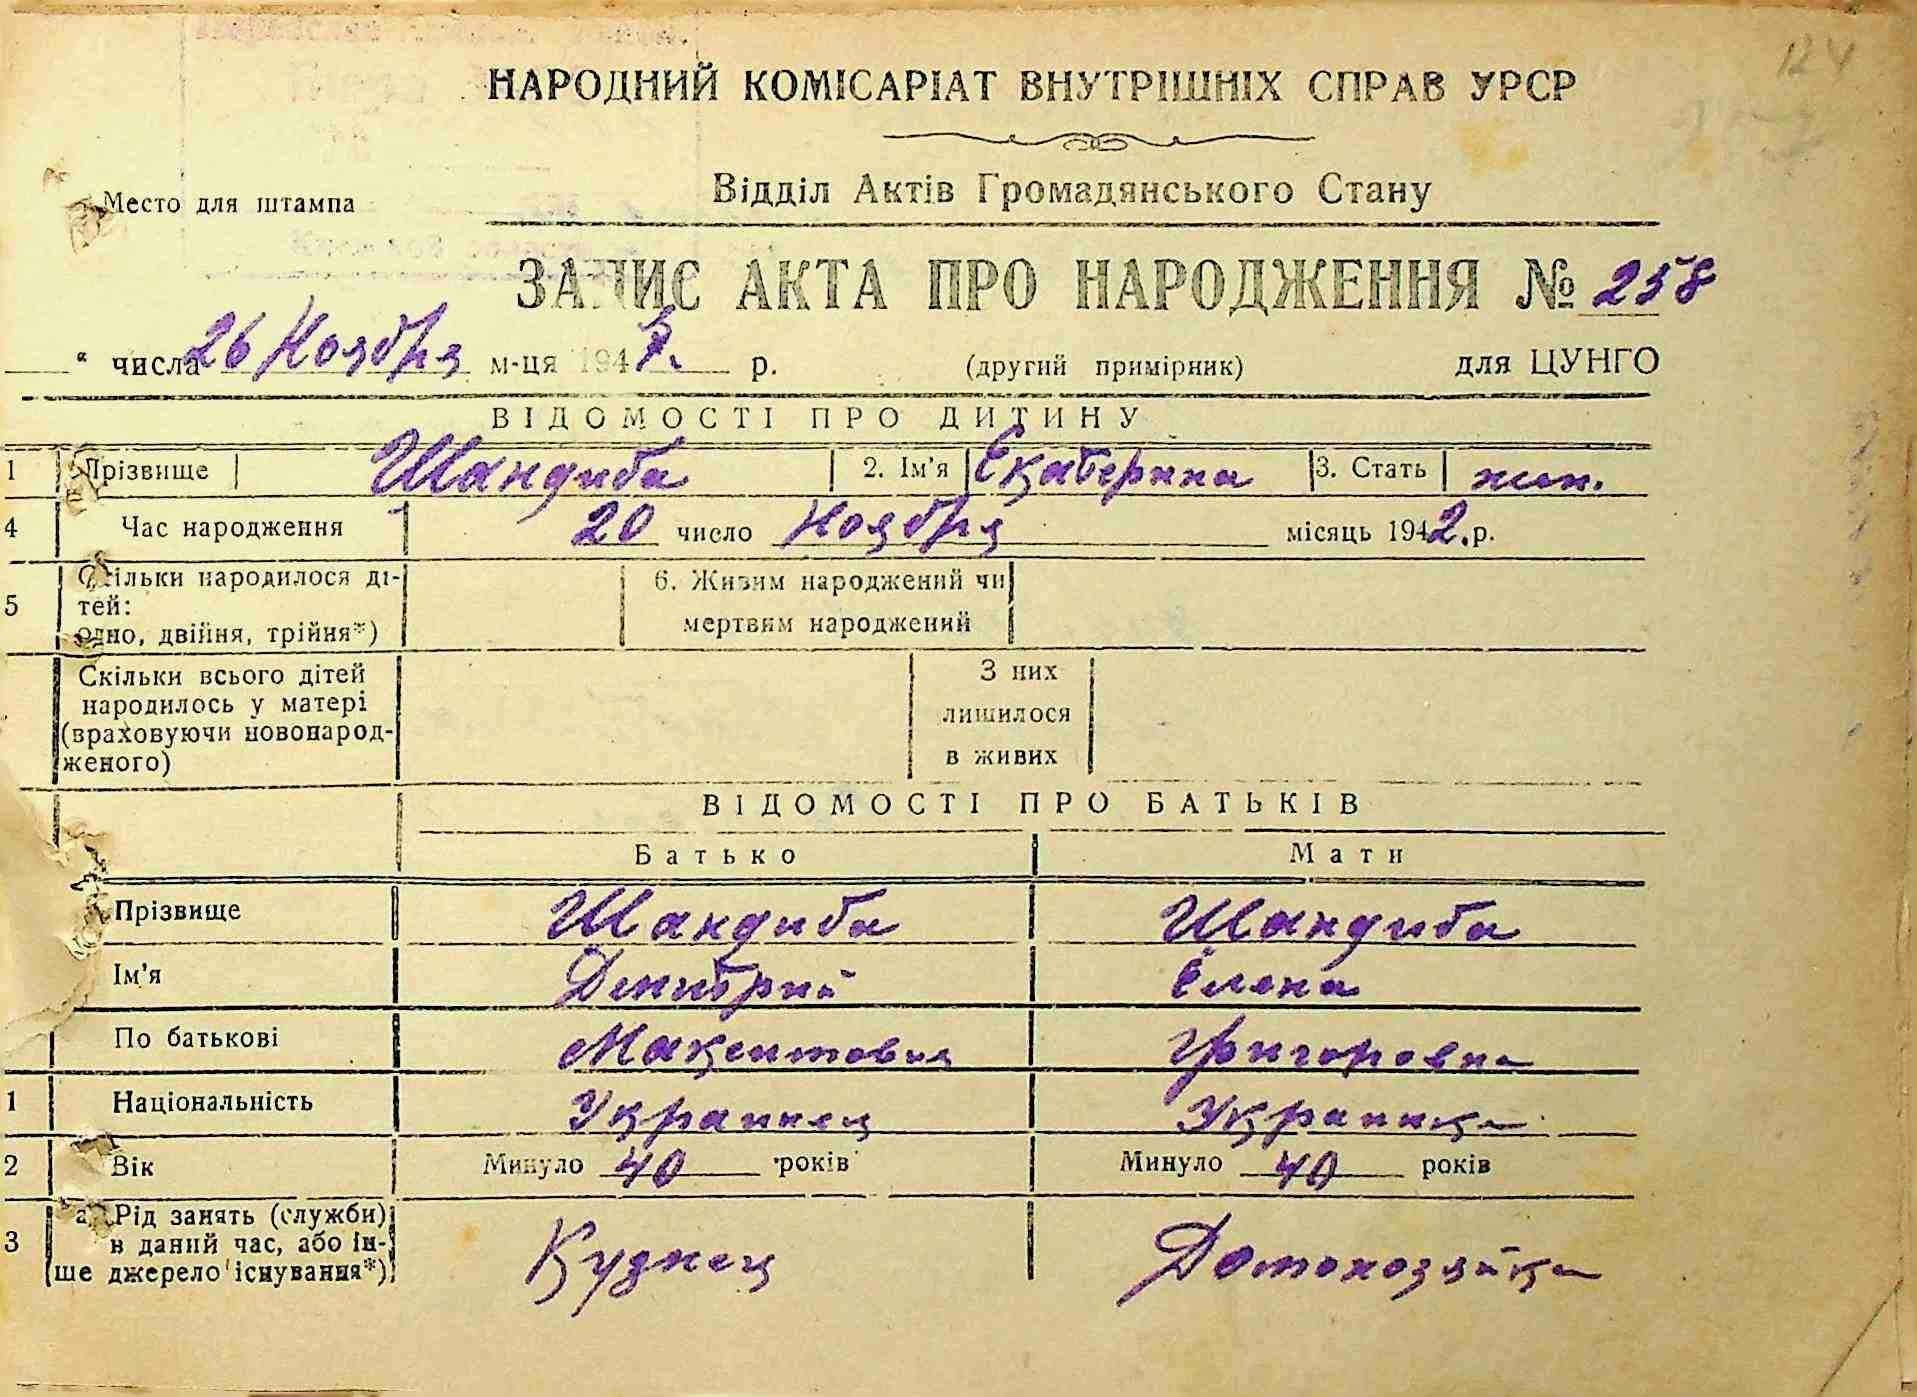 124
НАРОДНИЙ КОМІСАРІАТ ВНУТРІШНІХ СПРАВ УРСР
Место для штампа
Відділ Актів Громадянського Стану
ЗАПИС АКТА ПРО НАРОДЖЕННЯ № 258
“ числа 26 Ноября м-ця 194 р. (другий примірник) для ЦУНГО
ВІДОМОСТІ ПРО ДИТИНУ
1 Прізвище Шандиба 2. Ім'я Екатерина 3. Стать жин.
4 Час народження 20 число Ноября місяць 1942. р.
5 Скільки народилося ді-
тей:
одно, двійня, трійня*)
6. Живим народжений чи
мертвим народжений
Скільки всього дітей
народилось у матері
(враховуючи новонарод-
женого)
З них
лишилося
в живих
ВІДОМОСТІ ПРО БАТЬКІВ
Батько Мати
Прізвище Шандиба Шандиба
Ім'я Дмитрий Елена
По батькові Максимович Григоровна
1 Національність Украинец Украинка
2 Вік Минуло 40 років Минуло 40 років
3 а) Рід занять (служби)
в даний час, або ін-
ше джерело існування*)
Кузнец Домохозяйка